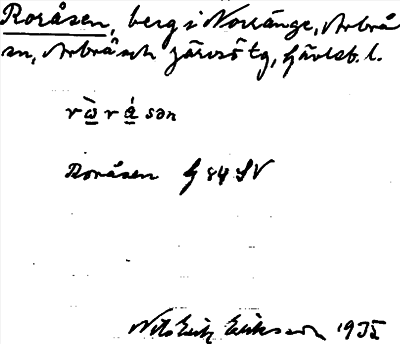 Roråsen, berg i Norränge, Arbrå
sn, Arbrå och Järvsö tg, Gävleb. l.
r ὼ r á sən
Roråsen G 84 SV
Nils Erik Eriksson 1935